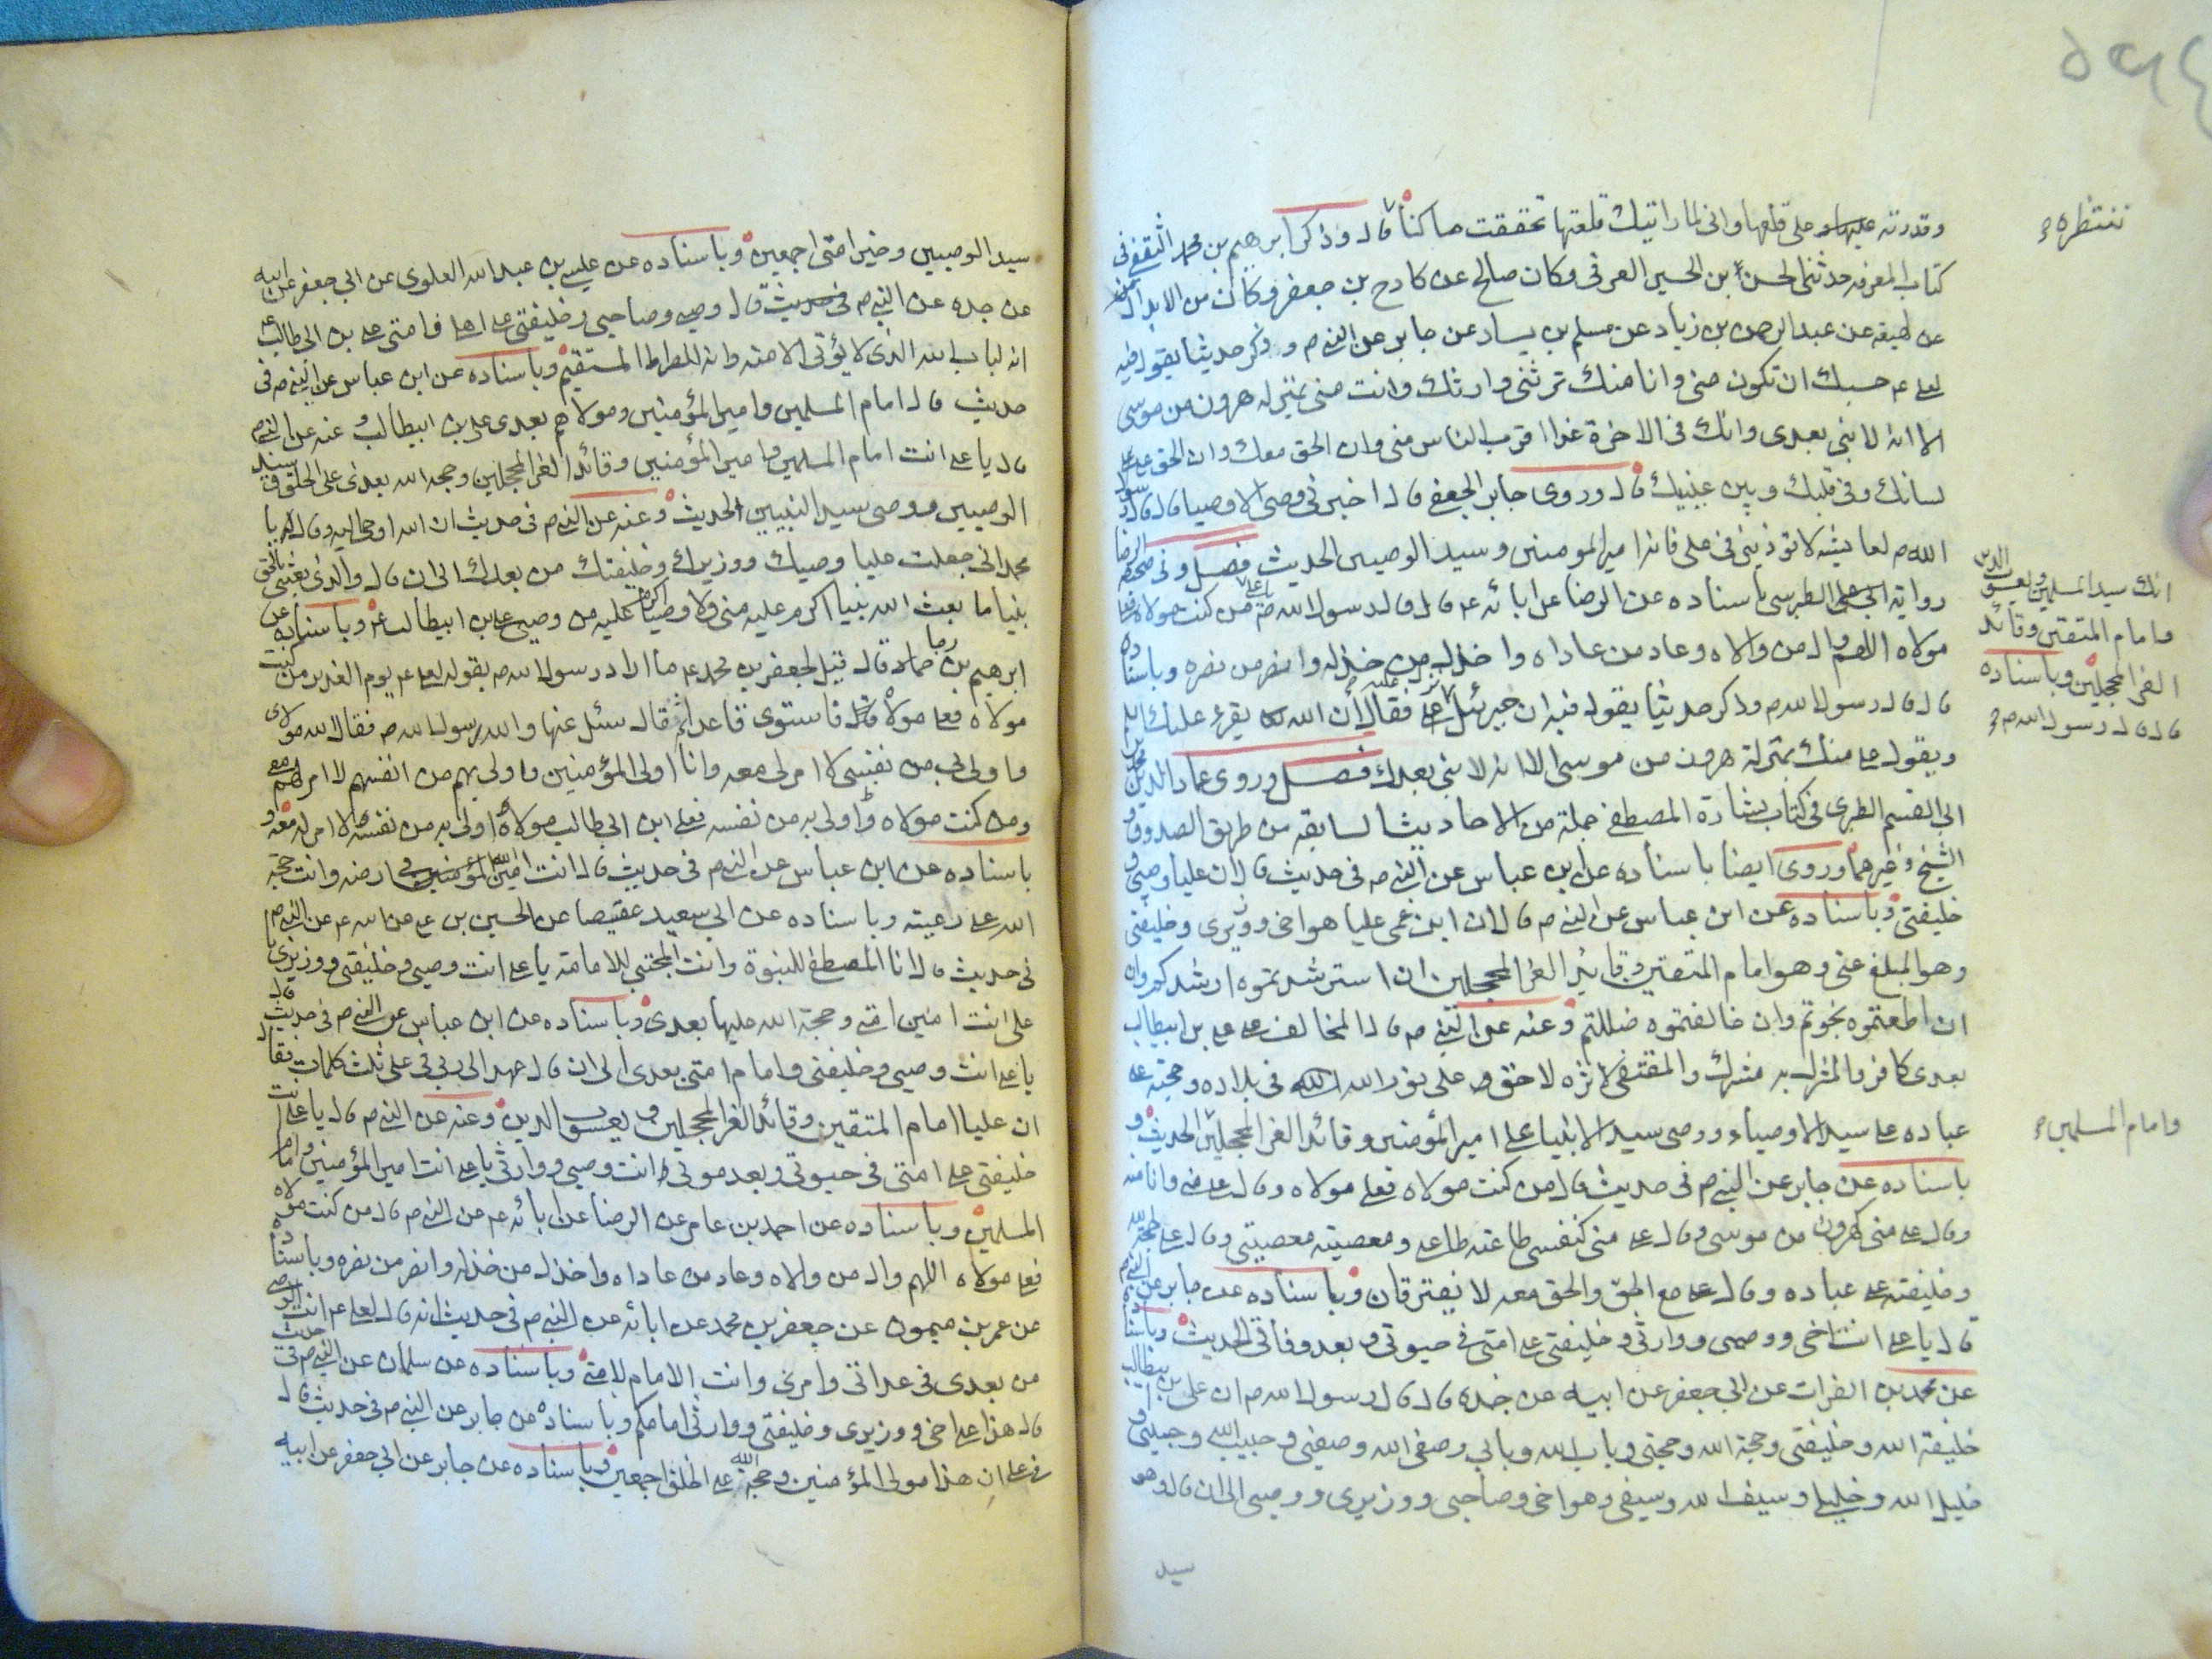 ننتظره
وقدرته على قلعها وانى لما رايتك قلعتها تحققت ما كنا قال وذكر ابرهيم بن محمد الثقفى فى
كتاب المعرفه حدثنى الحسن بن الحسين العرنى وكان صالح عن كادح بن جعفر وكان من الابدال
عن لهيعه عن عبد الرحمن بن زياد عن مسلم بن يسار عن جابر عن النبى ص وذكر حديثا يقول فيه
لعلى ع حسبك ان تكون منى وانا منك ترثنى وارثك وانت منى بمنزله هرون من موسى
الا انه لا نبى بعدى وانك فى الاخرة غدا اقرب الناس منى وان الحق معك وان الحق على
لسانك وفى قلبك وبين عينيك قال وروى جابر الجعفى قال اخبرنى وصى الاوصيا قال قال رسول
الله ص لعايشه لا توذينى فى على فانه امير المومنين وسيد الوصيين الحديث فصل وفى صحيفه الرضا
رواية ابى على الطبرسى باسناده عن الرضا عن ابائه ع قال قال رسول الله ص من كنت مولاه فعلى
مولاه اللهم وال من والاه وعاد من عاداه واخذل من خذله وانصر من نصره وباسناده
قال قال رسول الله ص وذكر حديثا يقول فيه ان جبرئيل نزل عليه فقال ان الله يقرئ عليك
ويقول على منك بمنزلة هرون من موسى الا انه لا نبى بعدك فصل وروى عماد الدين محمد بن
ابى القسم الطبرى فى كتاب بشارة المصطفى جملة من الاحاديث السابقه من طريق الصدوق و
الشيخ وغيرهما وروى ايضا باسناده عن ابن عباس عن النبى ص فى حديث قال ان عليا وصيى و
خليفتى وباسناده عن ابن عباس عن النبى ص قال ان ابن عمى عليا هو اخى ووزيرى وخليفتى
وهو المبلغ عنى وهو امام المتقين وقايد الغر المحجلين ان استرشدتموه ارشدكم وان
ان اطعتموه نجوتم وان خالفتموه ضللتم وعنه عن النبى ص قال المخالف على على بن ابيطالب
بعدى كافر والمشرك به مشرك والمقتفى لاثره لاحق على نور الله فى بلاده وحجته على
عباده على سيد الاوصياء ووصى سيد الانبياء على امير المؤمنين وقائد الغر المحجلين الحديث و
باسناده عن جابر عن النبى ص فى حديث قال من كنت مولاه فعلى مولاه وقال على منى وانا منه
وقال على منى كهرون من موسى وقال على منى كنفسى طاعته طاعتى ومعصيته معصيتى وقال على حجة الله
وخليفته على عباده وقال على مع الحق والحق معه لا يفترقان وباسناده عن جابر عن النبى ص
قال يا على انت اخى ووصيى ووارثى وخليفتى على امتى فى حيوتى وبعد وفاتى الحديث وباسناده
عن محمد بن الفرات عن ابى جعفر عن ابيه عن جده قال قال رسول الله ص ان على بن ابيطالب
خليفة الله وخليفتى وحجة الله وحجتى وباب الله وبابى وصفى الله وصفيى وحبيب الله وحبيبى و
خليل الله وخليلى وسيف الله وسيفى وهو اخى وصاحبى ووزيرى ووصيى الى ان قال وهو
سيد
انك سيد المسلمين ويعسوب الدين
وامام المتقين وقائد
الغر المحجلين وباسناده
قال قال رسول الله ص
وامام المسلمين
سيد الوصيين وخير امتى اجمعين وباسناده عن عيسى بن عبد الله العلوى عن ابى جعفر عن ابيه
عن جده عن النبى ص فى حديث قال وصيى وصاحبى وخليفتى على اهلى فى امتى على بن ابى طالب
انه لباب الله الذى لا يؤتى الا منه وانه للصراط المستقيم وباسناده عن ابن عباس عن النبى ص فى
حديث قال امام المسلمين وامير المؤمنين ومولاهم بعدى على بن ابيطالب وعنه عن النبى ص
قال يا على انت امام المسلمين وامير المؤمنين وقائد الغر المحجلين وحجه الله بعدى على الخلق وسيد
الوصيين ووصى سيد النبيين الحديث وعنه عن النبى ص فى حديث ان الله اوحى اليه وقال له يا
محمد انى جعلت عليا وصيك ووزيرك وخليفتك من بعدك الى ان قال والذى بعثنى بالحق
نبيا ما بعث الله نبيا اكرم عليه منى ولا وصيا اكرم عليه من وصيى على بن ابيطالب ع وباسناده عن
ابرهيم بن رجا قال قيل لجعفر بن محمد ع ما اراد رسول الله ص بقوله لعلى ع يوم الغدير من كنت
مولاه فعلى مولاه قال فاستوى قاعدا ثم قال سئل عنها والله رسول الله ص فقال الله مولاى
واولى بى من نفسى لا امر لى معه وانا اولى المؤمنين واولى بهم من انفسهم لا امر لهم معى
ومن كنت مولاه اولى به من نفسه فعلى ابن ابى طالب مولاه اولى به من نفسه لا امر له معه و
باسناده عن ابن عباس عن النبى ص فى حديث قال انت امين الله فى ارضه وانت حجة
الله على رعيته وباسناده عن ابى سعيد عقيصا عن الحسين بن على عن النبى ص
فى حديث قال انا المصطفى للنبوة وانت المجتبى للامامة يا على انت وصيى وخليفتى ووزيرى يا
على انت امين امتى وحجة الله عليها بعدى وباسناده عن ابن عباس عن النبى ص فى حديث قال
يا على انت وصيى وخليفتى وامام امتى بعدى الى ان قال عهد الى ربى فى على ثلث كلمات فقال
ان عليا امام المتقين وقائد الغر المحجلين ويعسوب الدين وعنه عن النبى ص قال يا على انت
خليفتى على امتى فى حيوتى وبعد موتى انت وصيى ووارثى يا على انت امير المؤمنين وامام
المسلمين وباسناده عن احمد بن عامر عن الرضا عن ابائه ع عن النبى ص قال من كنت مولاه
فعلى مولاه اللهم وال من والاه وعاد من عاداه واخذل من خذله وانصر من نصره وباسناده
عن عمر بن ميمون عن جعفر بن محمد عن ابائه عن النبى ص فى حديث انه قال لعلى ع انت الوصى
من بعدى فى عداتى وامرى وانت الامام لامتى وباسناده عن سلمان عن النبى ص فى حديث
قال هذا على اخى ووزيرى وخليفتى ووارثى امامكم وباسناده عن جابر عن النبى ص فى حديث قال
فى على ان هذا مولى المؤمنين وحجة الله على الخلق اجمعين وباسناده عن جابر عن ابى جعفر عن ابيه